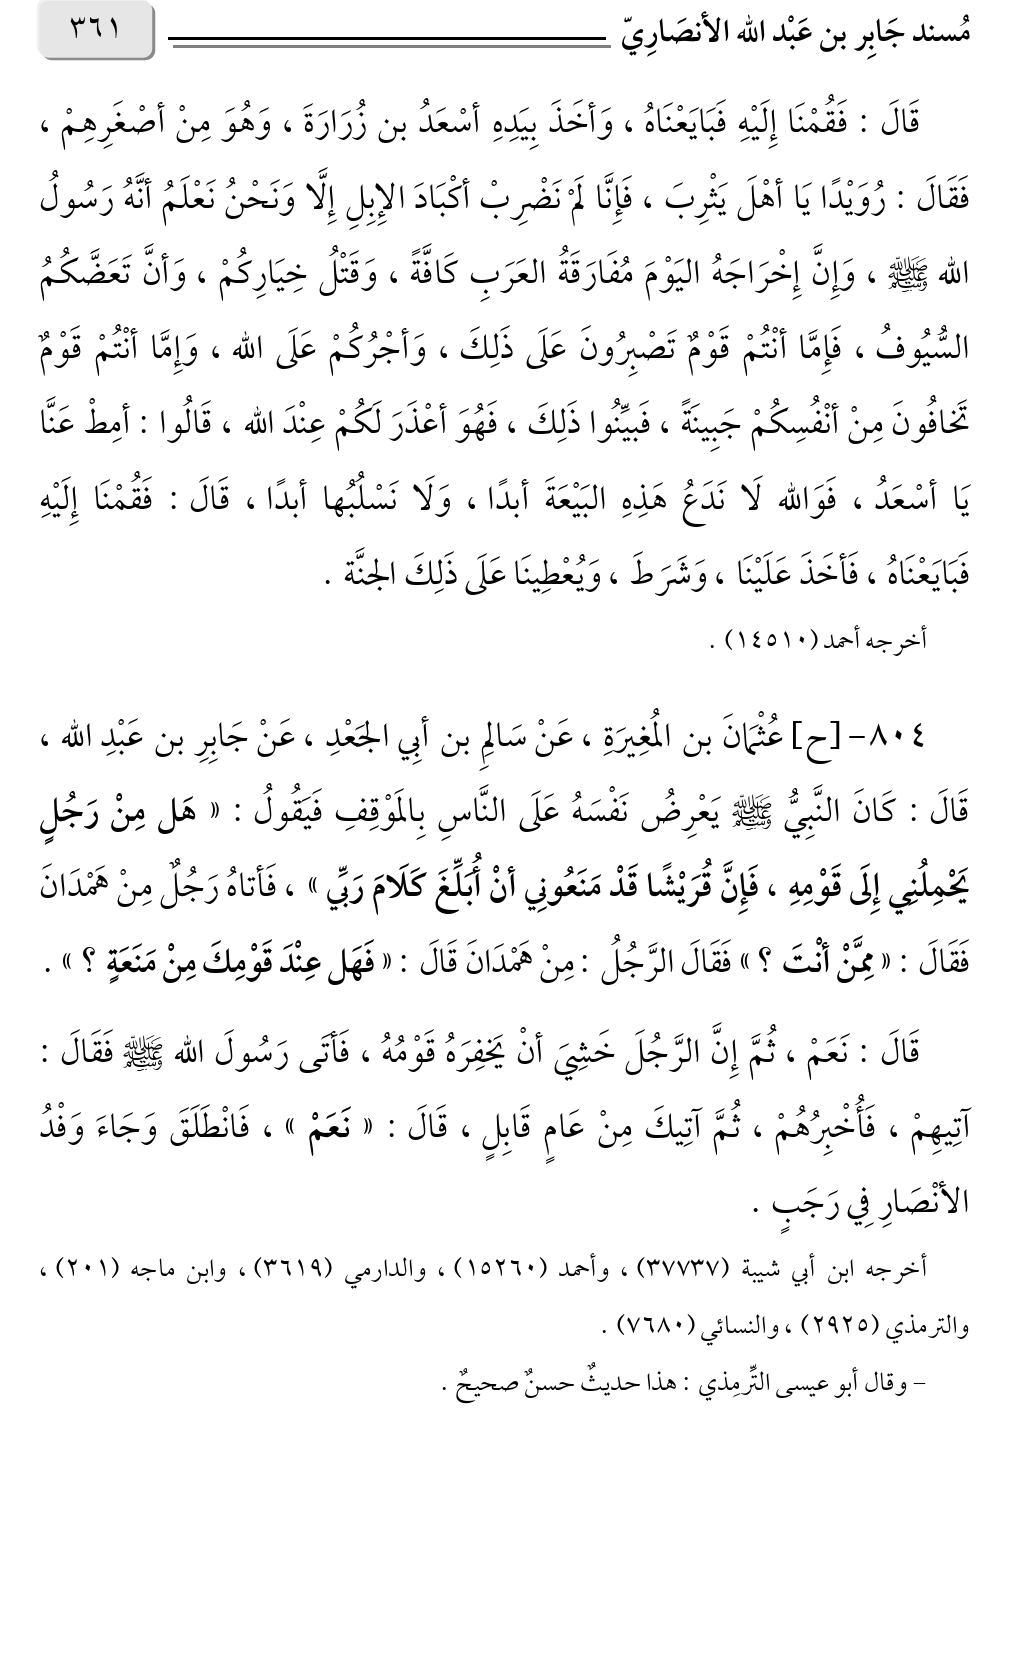 مُسند جَابِر بن عَبْد الله الأنصَارِيّ ٣٦١
قَالَ : فَقُمْنَا إِلَيْهِ فَبَايَعْنَاهُ ، وَأخَذَ بِيَدِهِ أسْعَدُ بن زُرَارَةَ ، وَهُوَ مِنْ أصْغَرِهِمْ ،
فَقَالَ : رُوَيْدًا يَا أهْلَ يَثْرِبَ ، فَإِنَّا لَمْ نَضْرِبْ أكْبَادَ الإِبِلِ إِلَّا وَنَحْنُ نَعْلَمُ أنَّهُ رَسُولُ
الله ﷺ ، وَإِنَّ إِخْرَاجَهُ اليَوْمَ مُفَارَقَةُ العَرَبِ كَافَّةً ، وَقَتْلُ خِيَارِكُمْ ، وَأنَّ تَعَضَّكُمُ
السُّيُوفُ ، فَإِمَّا أنْتُمْ قَوْمٌ تَصْبِرُونَ عَلَى ذَلِكَ ، وَأجْرُكُمْ عَلَى الله ، وَإِمَّا أنْتُمْ قَوْمٌ
تَخافُونَ مِنْ أنْفُسِكُمْ جَبِينَةً ، فَبيِّنُوا ذَلِكَ ، فَهُوَ أعْذَرَ لَكُمْ عِنْدَ الله ، قَالُوا : أمِطْ عَنَّا
يَا أسْعَدُ ، فَوَالله لَا نَدَعُ هَذِهِ البَيْعَةَ أبدًا ، وَلَا نَسْلُبُها أبدًا ، قَالَ : فَقُمْنَا إِلَيْهِ
فَبَايَعْنَاهُ ، فَأخَذَ عَلَيْنَا ، وَشَرَطَ ، وَيُعْطِينَا عَلَى ذَلِكَ الجنَّة .
أخرجه أحمد (١٤٥١٠) .
٨٠٤- [ح] عُثْمَانَ بن المُغِيرَةِ ، عَنْ سَالِمِ بن أبِي الجَعْدِ ، عَنْ جَابِرِ بن عَبْدِ الله ،
قَالَ : كَانَ النَّبِيُّ ﷺ يَعْرِضُ نَفْسَهُ عَلَى النَّاسِ بِالمَوْقِفِ فَيَقُولُ : « هَل مِنْ رَجُلٍ
يَحْمِلُنِي إِلَى قَوْمِهِ ، فَإِنَّ قُرَيْشًا قَدْ مَنَعُونِي أنْ أُبَلِّغَ كَلَامَ رَبِّي » ، فَأتاهُ رَجُلٌ مِنْ هَمْدَانَ
فَقَالَ : « مِمَّنْ أنْتَ ؟ » فَقَالَ الرَّجُلُ : مِنْ هَمْدَانَ قَالَ : « فَهَل عِنْدَ قَوْمِكَ مِنْ مَنَعَةٍ ؟ » .
قَالَ : نَعَمْ ، ثُمَّ إِنَّ الرَّجُلَ خَشِيَ أنْ يَخفِرَهُ قَوْمُهُ ، فَأتَى رَسُولَ الله ﷺ فَقَالَ :
آتِيهِمْ ، فَأُخْبِرُهُمْ ، ثُمَّ آتِيكَ مِنْ عَامٍ قَابِلٍ ، قَالَ : « نَعَمْ » ، فَانْطَلَقَ وَجَاءَ وَفْدُ
الأنْصَارِ فِي رَجَبٍ .
أخرجه ابن أبي شيبة (٣٧٧٣٧) ، وأحمد (١٥٢٦٠) ، والدارمي (٣٦١٩) ، وابن ماجه (٢٠١) ،
والترمذي (٢٩٢٥) ، والنسائي (٧٦٨٠) .
- وقال أبو عيسى التِّرمِذي : هذا حديثٌ حسنٌ صحيحٌ .